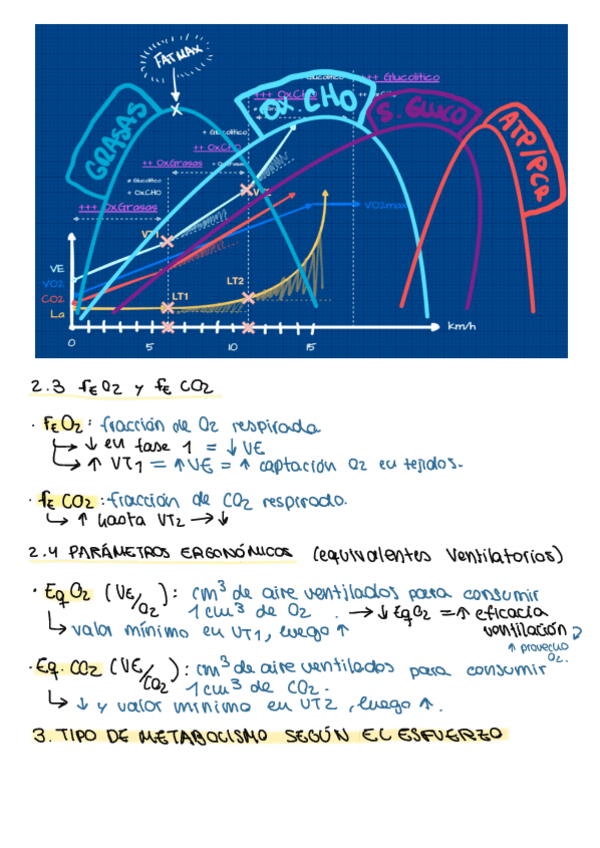 FATMAX
GRASAS
OX. CHO
S. GLUCO
ATP/PCR
+++ Glucolítico
+++ OxCHO
+ Glucolítico
++ OxCHO
++ OxGrasas
+ Glucolítico
+ OxCHO
+++ OxGrasas
VT1
VO2max
VE
VO2
CO2
La
LT1
LT2
km/h
0
5
10
15
2.3 FEO2 y FE CO2
· FEO2: fracción de O2 respirada
↳ ↓ en fase 1 = ↓ VE
↳ ↑ VT1 = ↑VE = ↑ captación O2 en tejidos.
· FE CO2: fracción de CO2 respirado.
↳ ↑ hasta VT2 → ↓
2.4 PARÁMETROS ERGONÓMICOS (equivalentes ventilatorios)
· Eq O2 (VE/O2): cm³ de aire ventilados para consumir
1 cm³ de O2. → ↓ EqO2 = ↑ eficacia
ventilación
↳ valor mínimo en VT1, luego ↑
↑ provecho
O2.
· Eq. CO2 (VE/CO2): cm³ de aire ventilados para consumir
1 cm³ de CO2.
↳ ↓ y valor mínimo en VT2, luego ↑.
3. TIPO DE METABOLISMO SEGÚN EL ESFUERZO